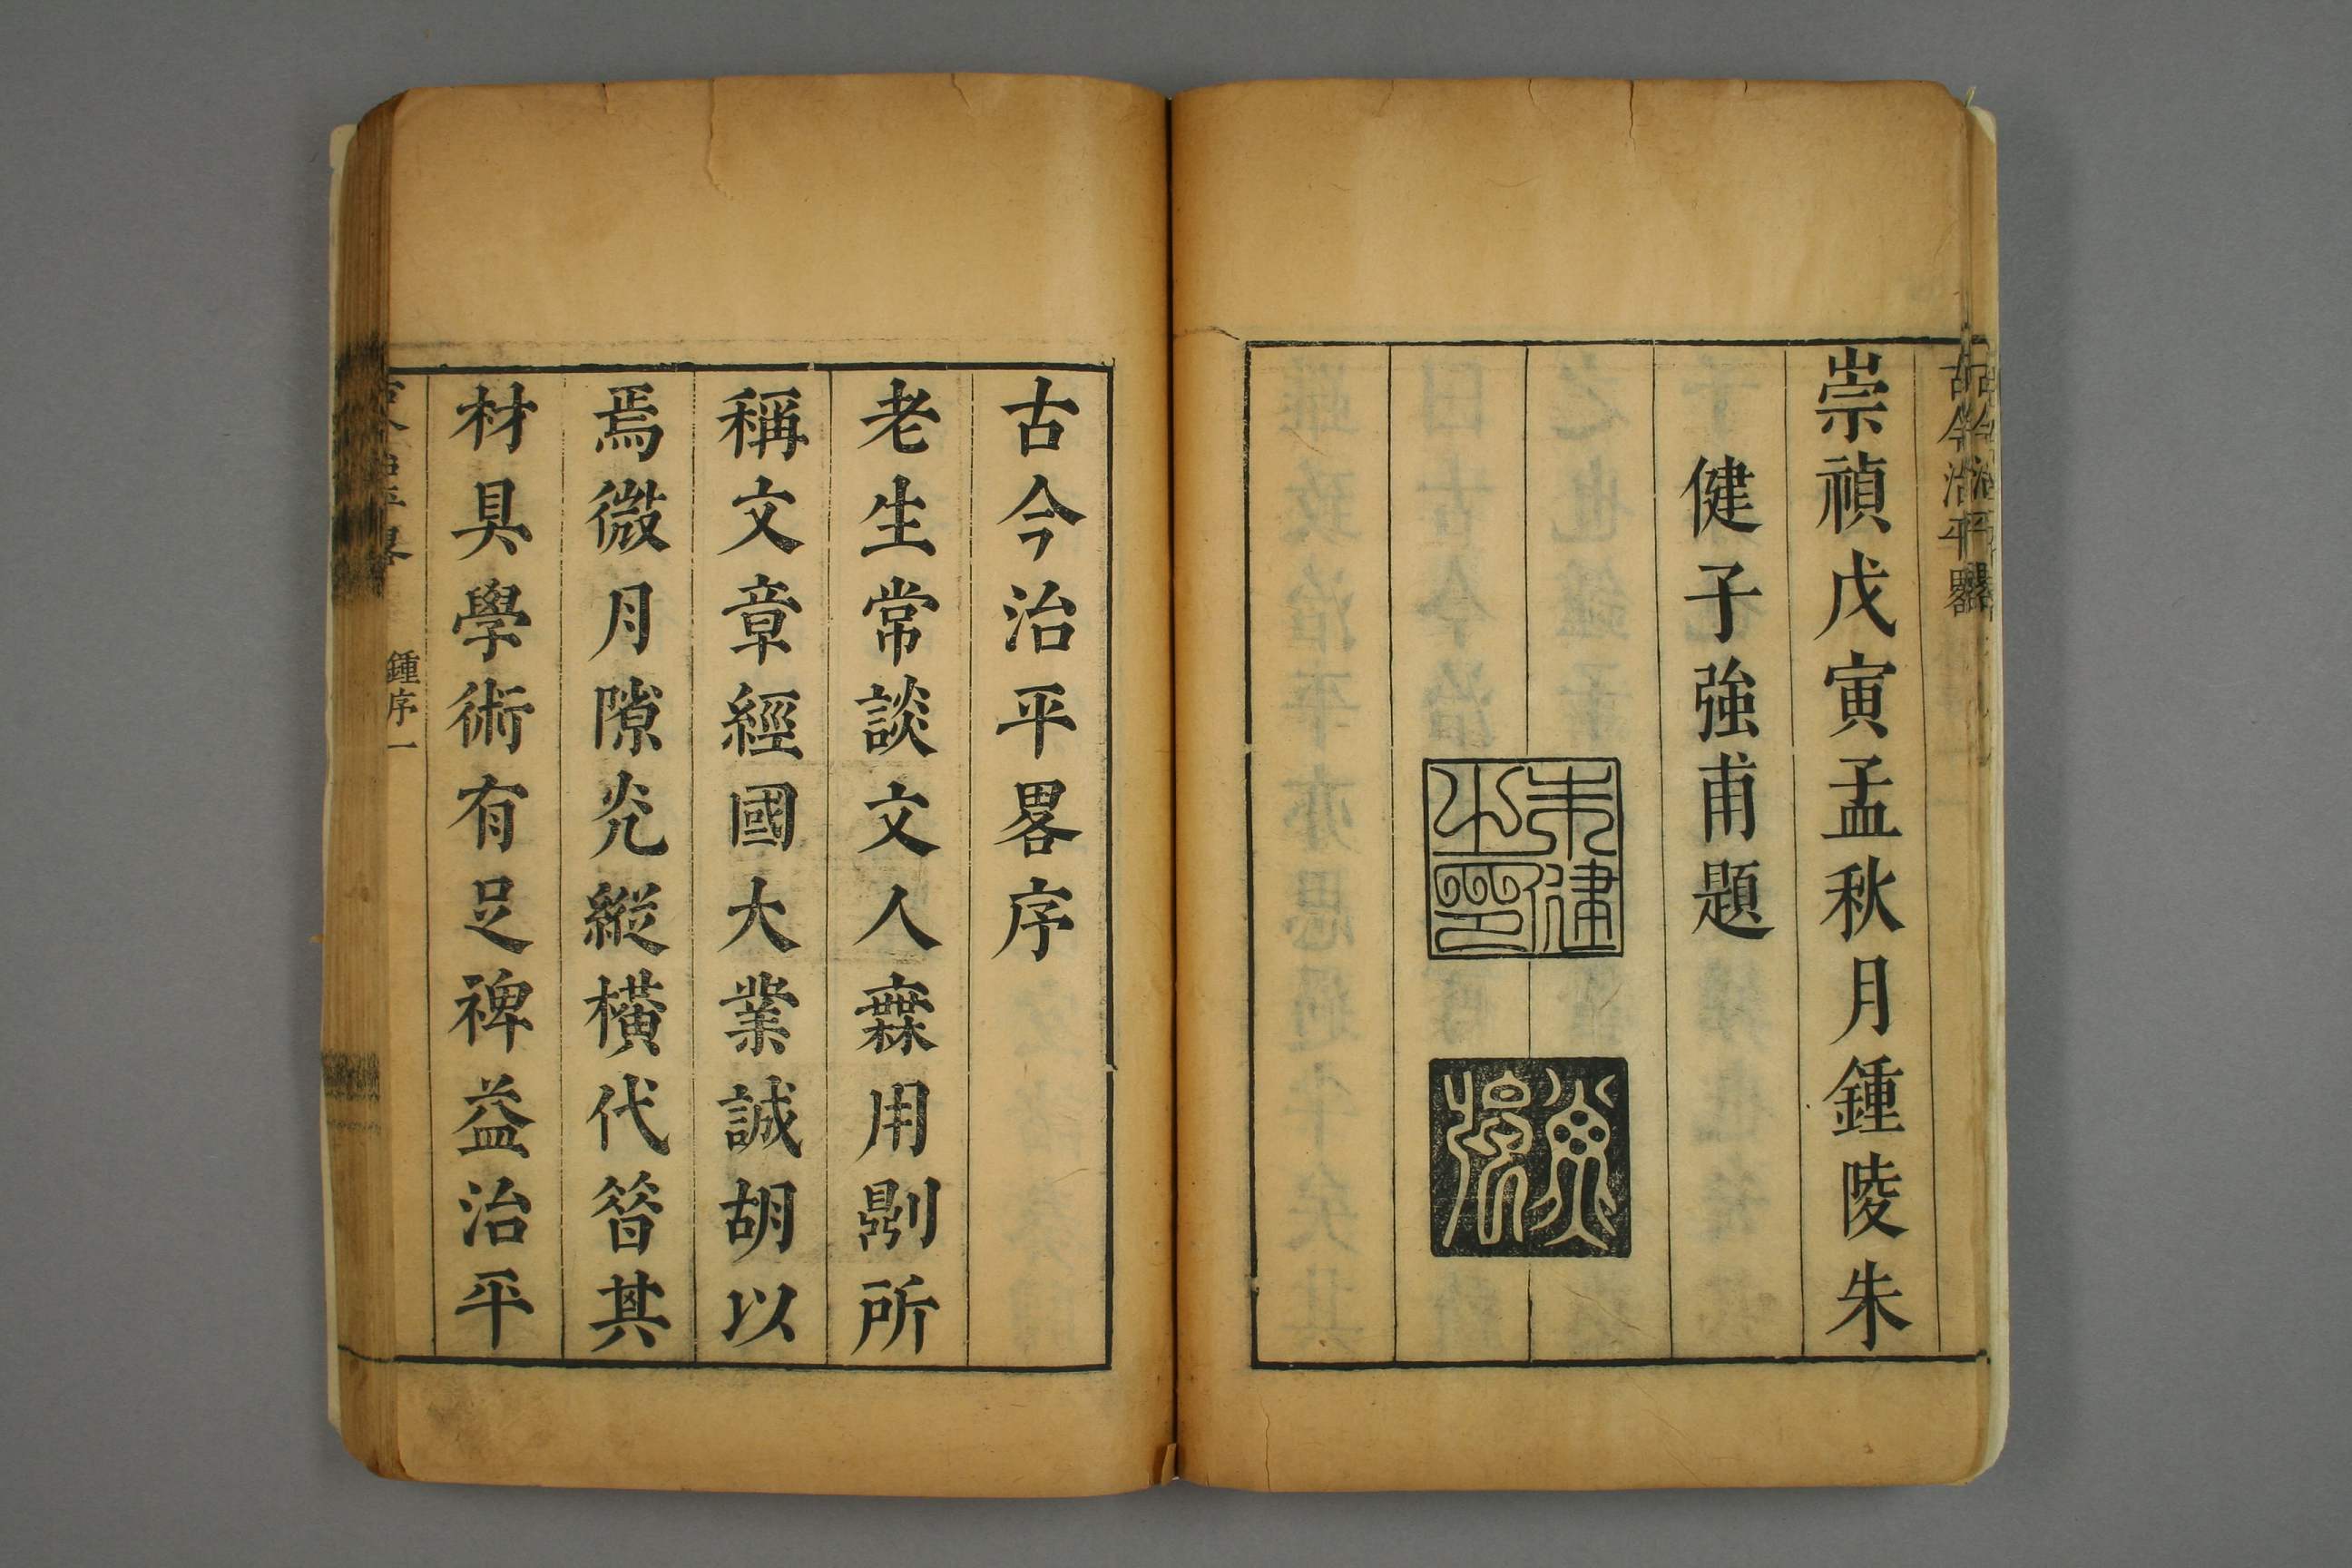 古今治平畧
崇禎戊寅孟秋月鍾陵朱
健子強甫題
朱健之印
古今治平畧序
老生常談文人霖用剔所
稱文章經國大業誠胡以
焉微月隙炗縱橫代筓其
材具學術有足裨益治平
鍾序一